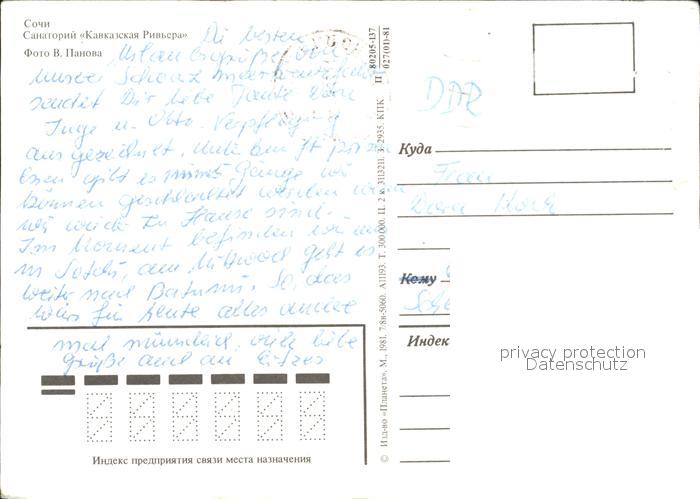 Сочи
Санаторий «Кавказская Ривьера»
Фото В. Панова
Die besten
Urlaubsgrüße von
unser Schwarzmeerrundfahrt
sendet Dir liebe Tante Dora
Inge u. Otto. Verpflegung
ausgezeichnet. Mittagen ist
Essen gibt es Gänge wir
können geschlachtet werden wenn
wir wieder zu Hause sind.
Im Moment befinden wir uns
in Sotschi, am Mittwoch geht es
weiter nach Batumi. So, das
wärs für heute alles andre
mal mündlich, viele liebe
Grüße auch an
Индекс предприятия связи места назначения
© Изд-во «Планета», М., 1981. 7/8н-5060. А11193. Т. 300 000. Ц. 2 к. З. 2935. КПК
80205-137
П
027(01)-81
DDR
Куда
Frau
Dora
Кому
Индекс
privacy protection
Datenschutz